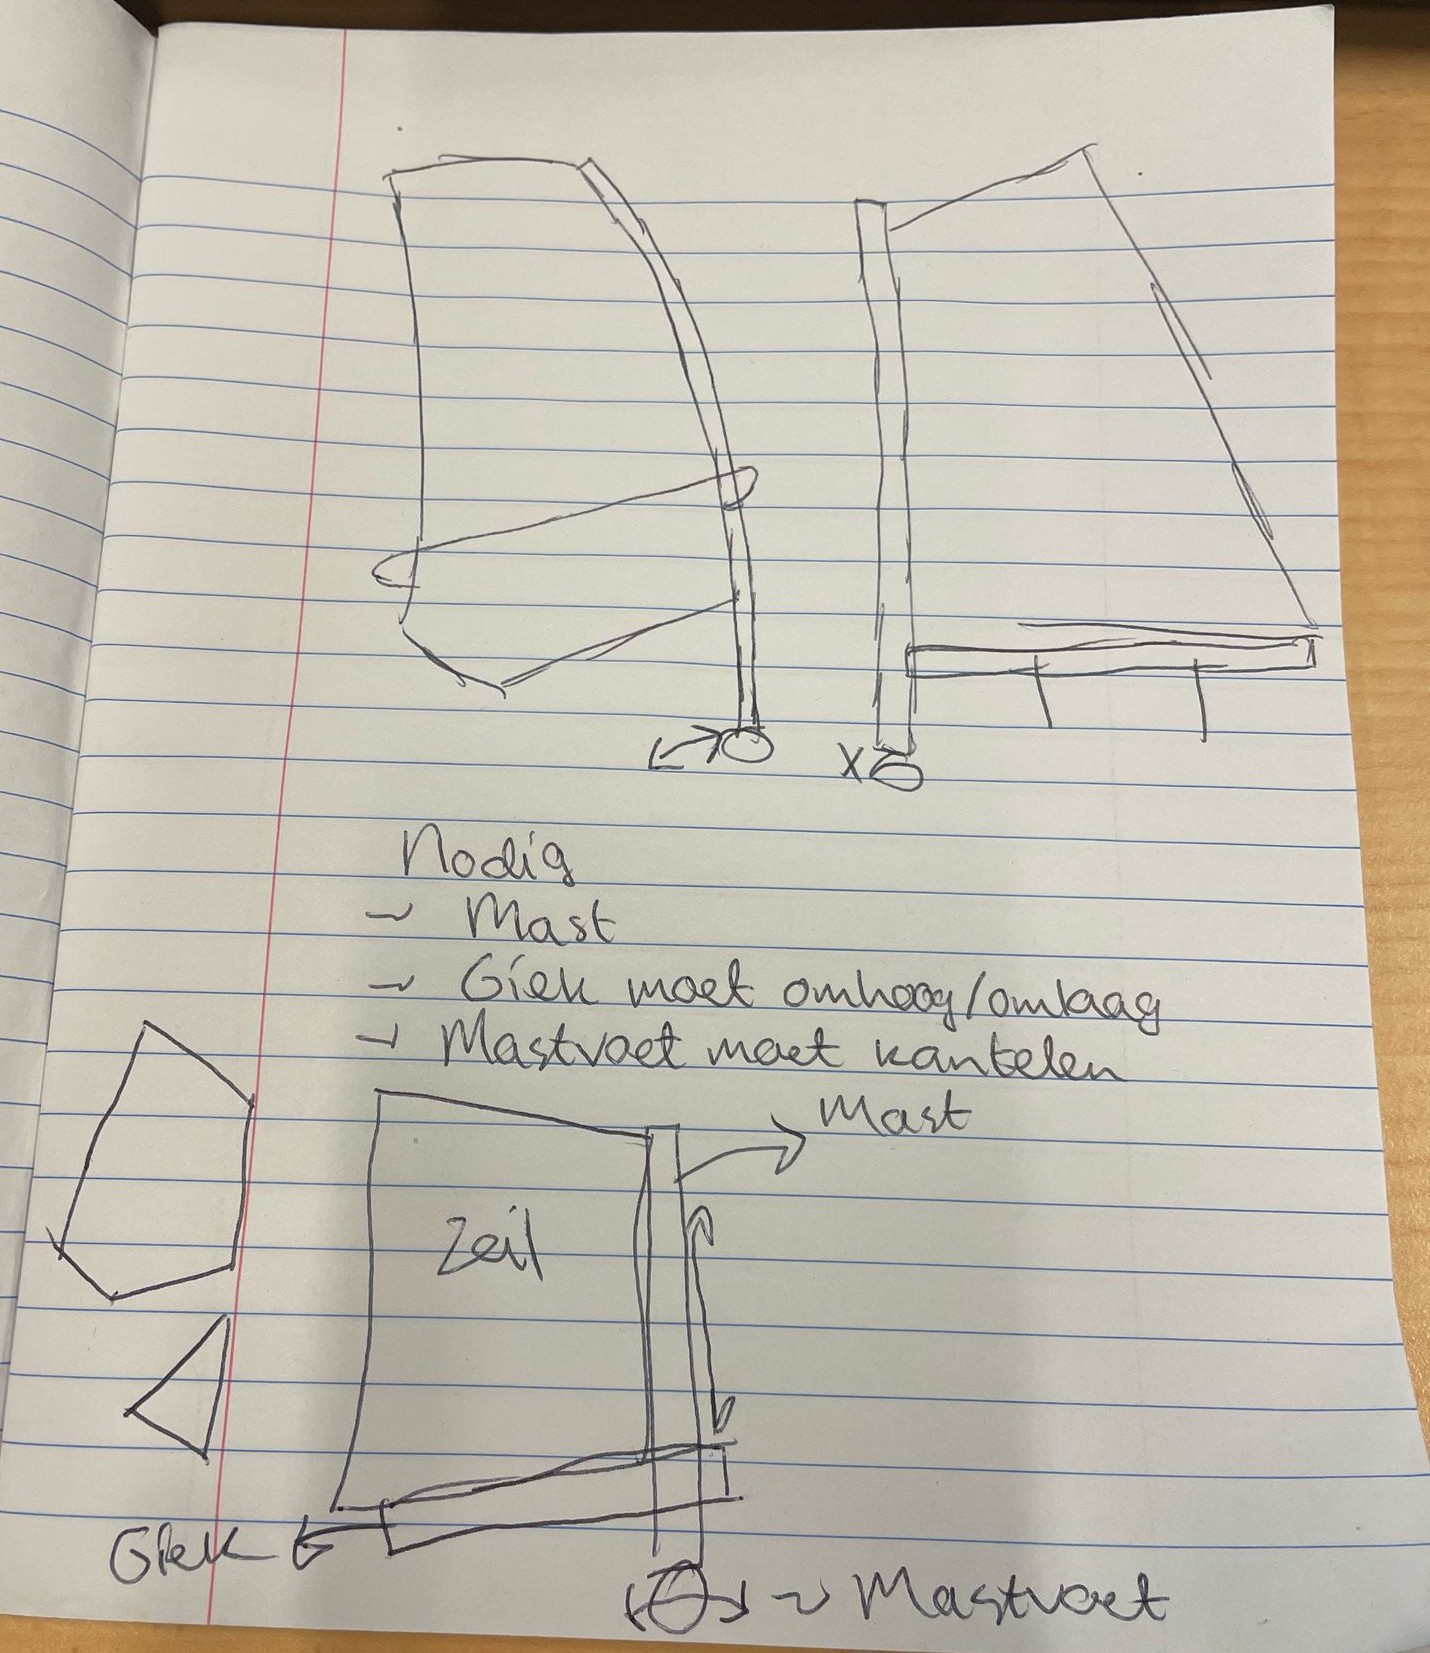 X
Nodig
- Mast
- Giek moet omhoog/omlaag
- Mastvoet moet kantelen
Mast
Zeil
Giek
Mastvoet